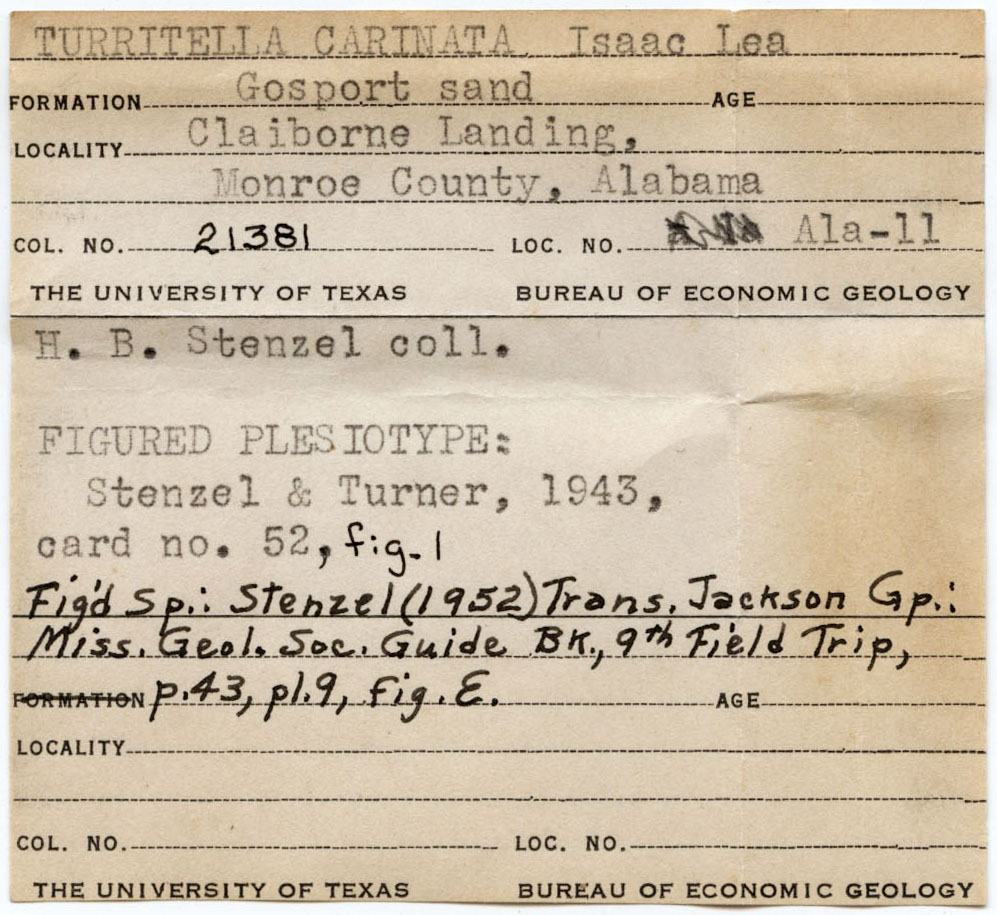 TURRITELLA CARINATA Isaac Lea
FORMATION Gosport sand AGE
LOCALITY Claiborne Landing,
Monroe County, Alabama
COL. NO. 21381 LOC. NO. Ala-11
THE UNIVERSITY OF TEXAS BUREAU OF ECONOMIC GEOLOGY
H. B. Stenzel coll.
FIGURED PLESIOTYPE:
Stenzel & Turner, 1943,
card no. 52, fig. 1
Fig'd Sp.: Stenzel (1952) Trans. Jackson Gp.:
Miss. Geol. Soc. Guide Bk., 9th Field Trip,
FORMATION p.43, pl.9, fig. E. AGE
LOCALITY
COL. NO. LOC. NO.
THE UNIVERSITY OF TEXAS BUREAU OF ECONOMIC GEOLOGY